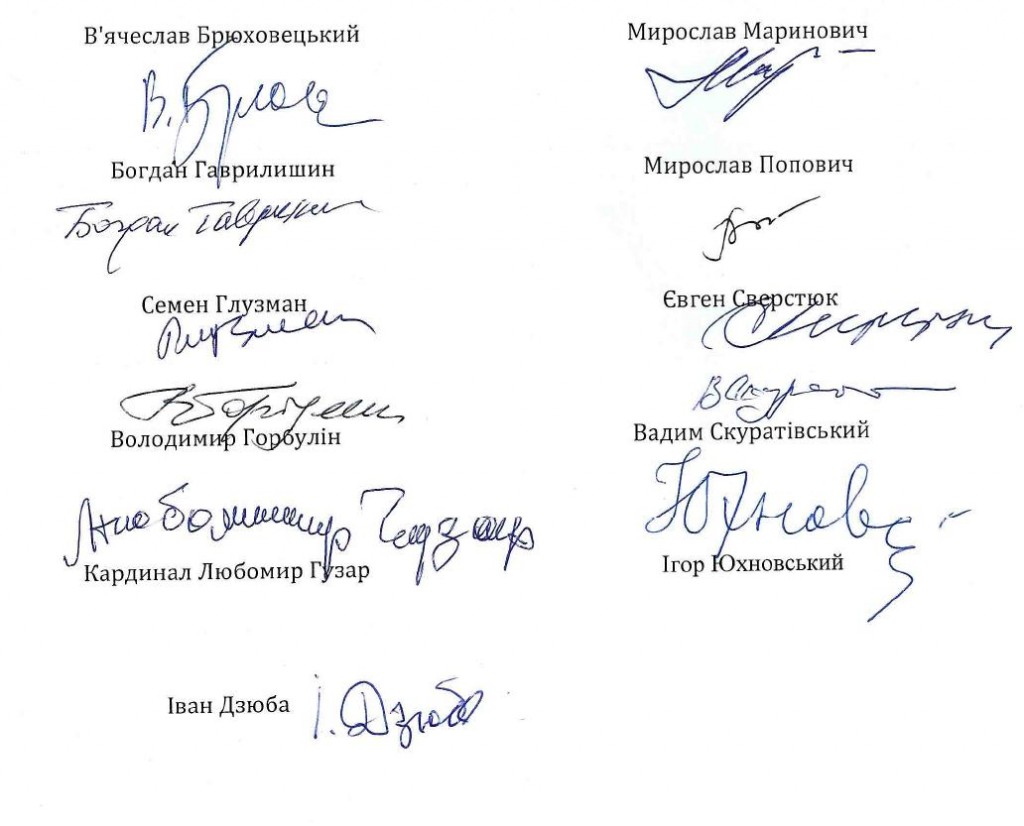 В'ячеслав Брюховецький
Богдан Гаврилишин
Богдан Гаврилишин
Семен Глузман
Глузман
Володимир Горбулін
Любомир Гузар
Кардинал Любомир Гузар
Іван Дзюба
І. Дзюба
Мирослав Маринович
Мирослав Попович
Євген Сверстюк
Вадим Скуратівський
Ігор Юхновський